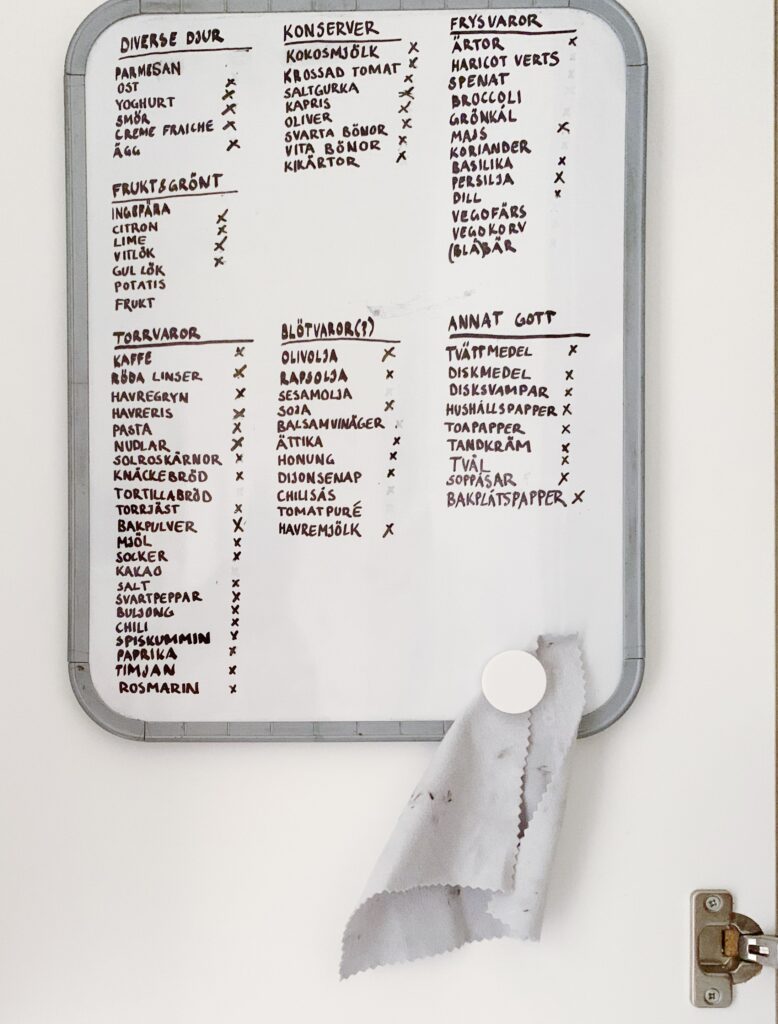 DIVERSE DJUR
PARMESAN
OST x
YOGHURT x
SMÖR
CREME FRAICHE x
ÄGG x
FRUKT&GRÖNT
INGEFÄRA x
CITRON x
LIME x
VITLÖK x
GUL LÖK
POTATIS
FRUKT
KONSERVER
KOKOSMJÖLK x
KROSSAD TOMAT x
SALTGURKA x
KAPRIS x
OLIVER x
SVARTA BÖNOR x
VITA BÖNOR x
KIKÄRTOR x
FRYSVAROR
ÄRTOR x
HARICOT VERTS
SPENAT
BROCCOLI
GRÖNKÅL
MAJS x
KORIANDER
BASILIKA x
PERSILJA x
DILL x
VEGOFÄRS
VEGOKORV
(BLÅ)BÄR
TORRVAROR
KAFFE x
RÖDA LINSER x
HAVREGRYN x
HAVRERIS x
PASTA x
NUDLAR x
SOLROSKÄRNOR x
KNÄCKEBRÖD x
TORTILLABRÖD
TORRJÄST x
BAKPULVER x
MJÖL x
SOCKER x
KAKAO
SALT x
SVARTPEPPAR x
BULJONG x
CHILI x
SPISKUMMIN x
PAPRIKA x
TIMJAN x
ROSMARIN x
BLÖTVAROR(?)
OLIVOLJA x
RAPSOLJA x
SESAMOLJA
SOJA x
BALSAMVINÄGER
ÄTTIKA x
HONUNG x
DIJONSENAP x
CHILISÅS
TOMATPURÉ
HAVREMJÖLK x
ANNAT GOTT
TVÄTTMEDEL x
DISKMEDEL x
DISKSVAMPAR x
HUSHÅLLSPAPPER x
TOAPAPPER x
TANDKRÄM x
TVÅL x
SOPPÅSAR x
BAKPLÅTSPAPPER x